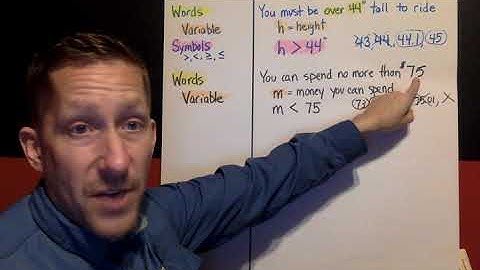 Words
Variable
Symbols
>, <, ≥, ≤
You must be over 44" tall to ride
h = height
h > 44"
43, 44, 44.1, 45
Words
Variable
You can spend no more than $75
m = money you can spend
m < 75
73